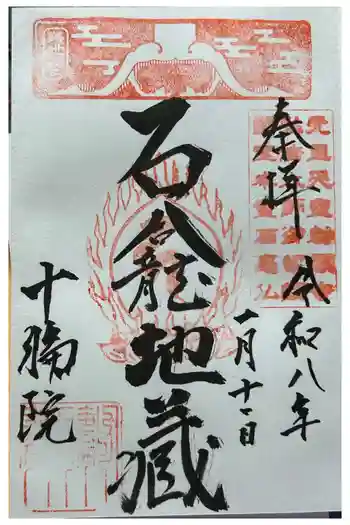 奉拝
令和八年
一月十一日
石龕地蔵
十輪院